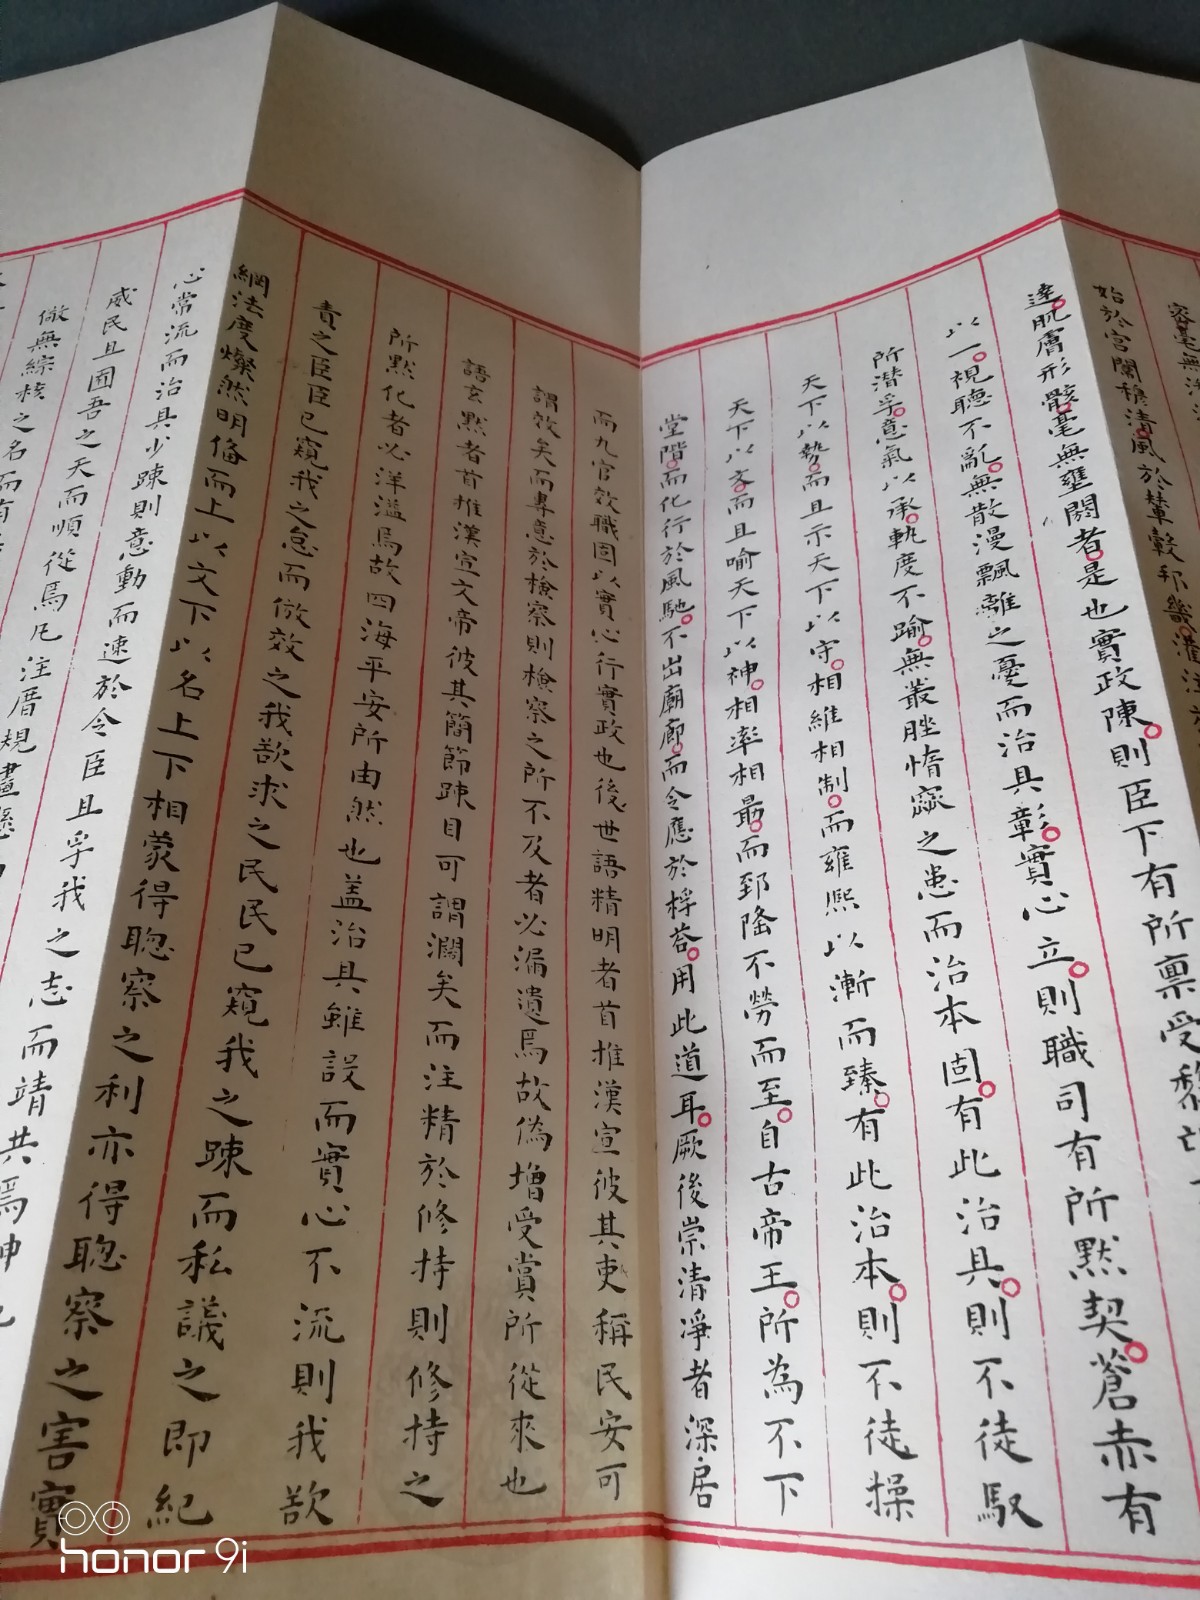 始於宮闈穆清風於輦轂邦畿清
達肌膚形骸毫無壅閼者是也實政陳則臣下有所稟受黎
以一視聽不亂無散漫飄離之憂而治具彰實心立則職司有所默契蒼赤有
所潛孚意氣以承軌度不踰無叢脞惰窳之患而治本固有此治具則不徒馭
天下以勢而且示天下以守相維相制而雍熙以漸而臻有此治本則不徒操
天下以文而且喻天下以神相率相勗而郅隆不勞而至自古帝王所為不下
堂階而化行於風馳不出廟廊而令應於桴荅用此道耳厥後崇清淨者深居
而九官效職固以實心行實政也後世語精明者首推漢宣彼其吏稱民安可
謂效矣而專意於檢察則檢察之所不及者必漏遺焉故偽增受賞所從來也
語玄默者首推漢宣文帝彼其簡節踈目可謂濶矣而注精於修持則修持之
所默化者必洋溢焉故四海平安所由然也盖治具雖設而實心不流則我欲
責之臣臣已窺我之怠而倣效之我欲求之民民已窺我之踈而私議之即紀
綱法度燦然明偹而上以文下以名上下相蒙得聦察之利亦得聦察之害實
心常流而治具少踈則意動而速於令臣且孚我之志而靖共焉神
威民且囿吾之天而順從焉凡注厝規畫
倣無綜核之名而有
honor 9i